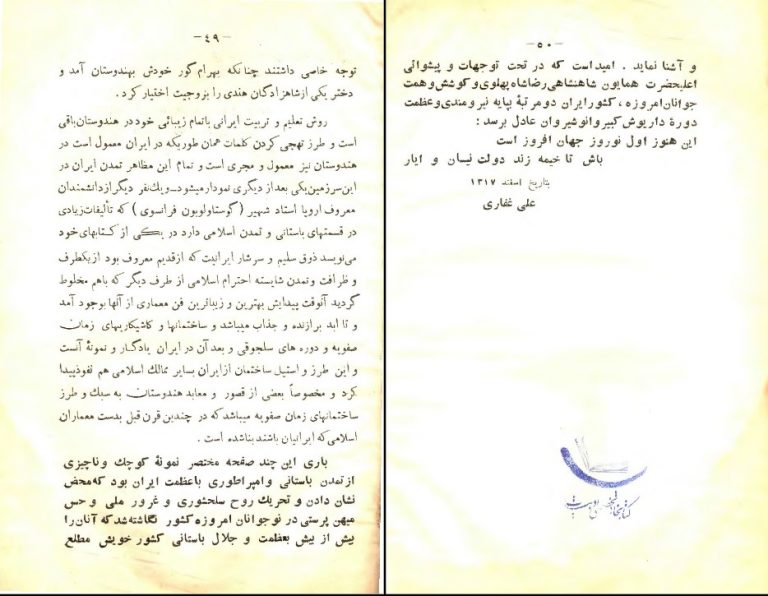 -٤٩-
توجه خاصی داشتند چنانکه بهرام گور خودش بهندوستان آمد و
دختر یکی از شاهزادگان هندی را بزوجیت اختیار کرد.
روش تعلیم و تربیت ایرانی باتمام زیبائی خود در هندوستان باقی
است و طرز تهجی کردن کلمات همان طوریکه در ایران معمول است در
هندوستان نیز معمول و مجری است و تمام این مظاهر تمدن ایران در
این سرزمین یکی بعد از دیگری نمودار میشود ـ ویك نفر دیگر از دانشمندان
معروف اروپا استاد شهیر (گوستاولوبون فرانسوی) که تألیفات زیادی
در قسمتهای باستانی و تمدن اسلامی دارد در یکی از کتابهای خود
می‌نویسد ذوق سلیم و سرشار ایرانیت که از قدیم معروف بود از یکطرف
و ظرافت وتمدن شایسته احترام اسلامی از طرف دیگر که باهم مخلوط
گردید آنوقت پیدایش بهترین و زیباترین فن معماری از آنها بوجود آمد
و تا ابد برازنده و جذاب میباشد و ساختمانها و کاشیکاریهای زمان
صفویه و دوره های سلجوقی و بعد آن در ایران یادگار و نمونهٔ آنست
و این طرز و استیل ساختمان از ایران بسایر ممالك اسلامی هم نفوذ پیدا
کرد و مخصوصاً بعضی از قصور و معابد هندوستان به سبك و طرز
ساختمانهای زمان صفویه میباشد که در چندین قرن قبل بدست معماران
اسلامی که ایرانیان باشند بنا شده است.
باری این چند صفحه مختصر نمونهٔ کوچك وناچیزی
از تمدن باستانی و امپراطوری باعظمت ایران بود که محض
نشان دادن و تحریك روح سلحشوری و غرور ملی و حس
میهن پرستی در نوجوانان امروزه کشور نگاشته شد که آنان را
بیش از پیش بعظمت و جلال باستانی کشور خویش مطلع
-٥٠-
و آشنا نماید. امید است که در تحت توجهات و پیشوائی
اعلیحضرت همایون شاهنشاهی رضا شاه پهلوی و کوشش و همت
جوانان امروزه، کشور ایران دو مرتبهٔ بپایه نیرومندی و عظمت
دورهٔ داریوش کبیر و انوشیروان عادل برسد:
این هنوز اول نوروز جهان افروز است
باش تا خیمه زند دولت نیسان و ایار
بتاریخ اسفند ١٣١٧
علی غفاری